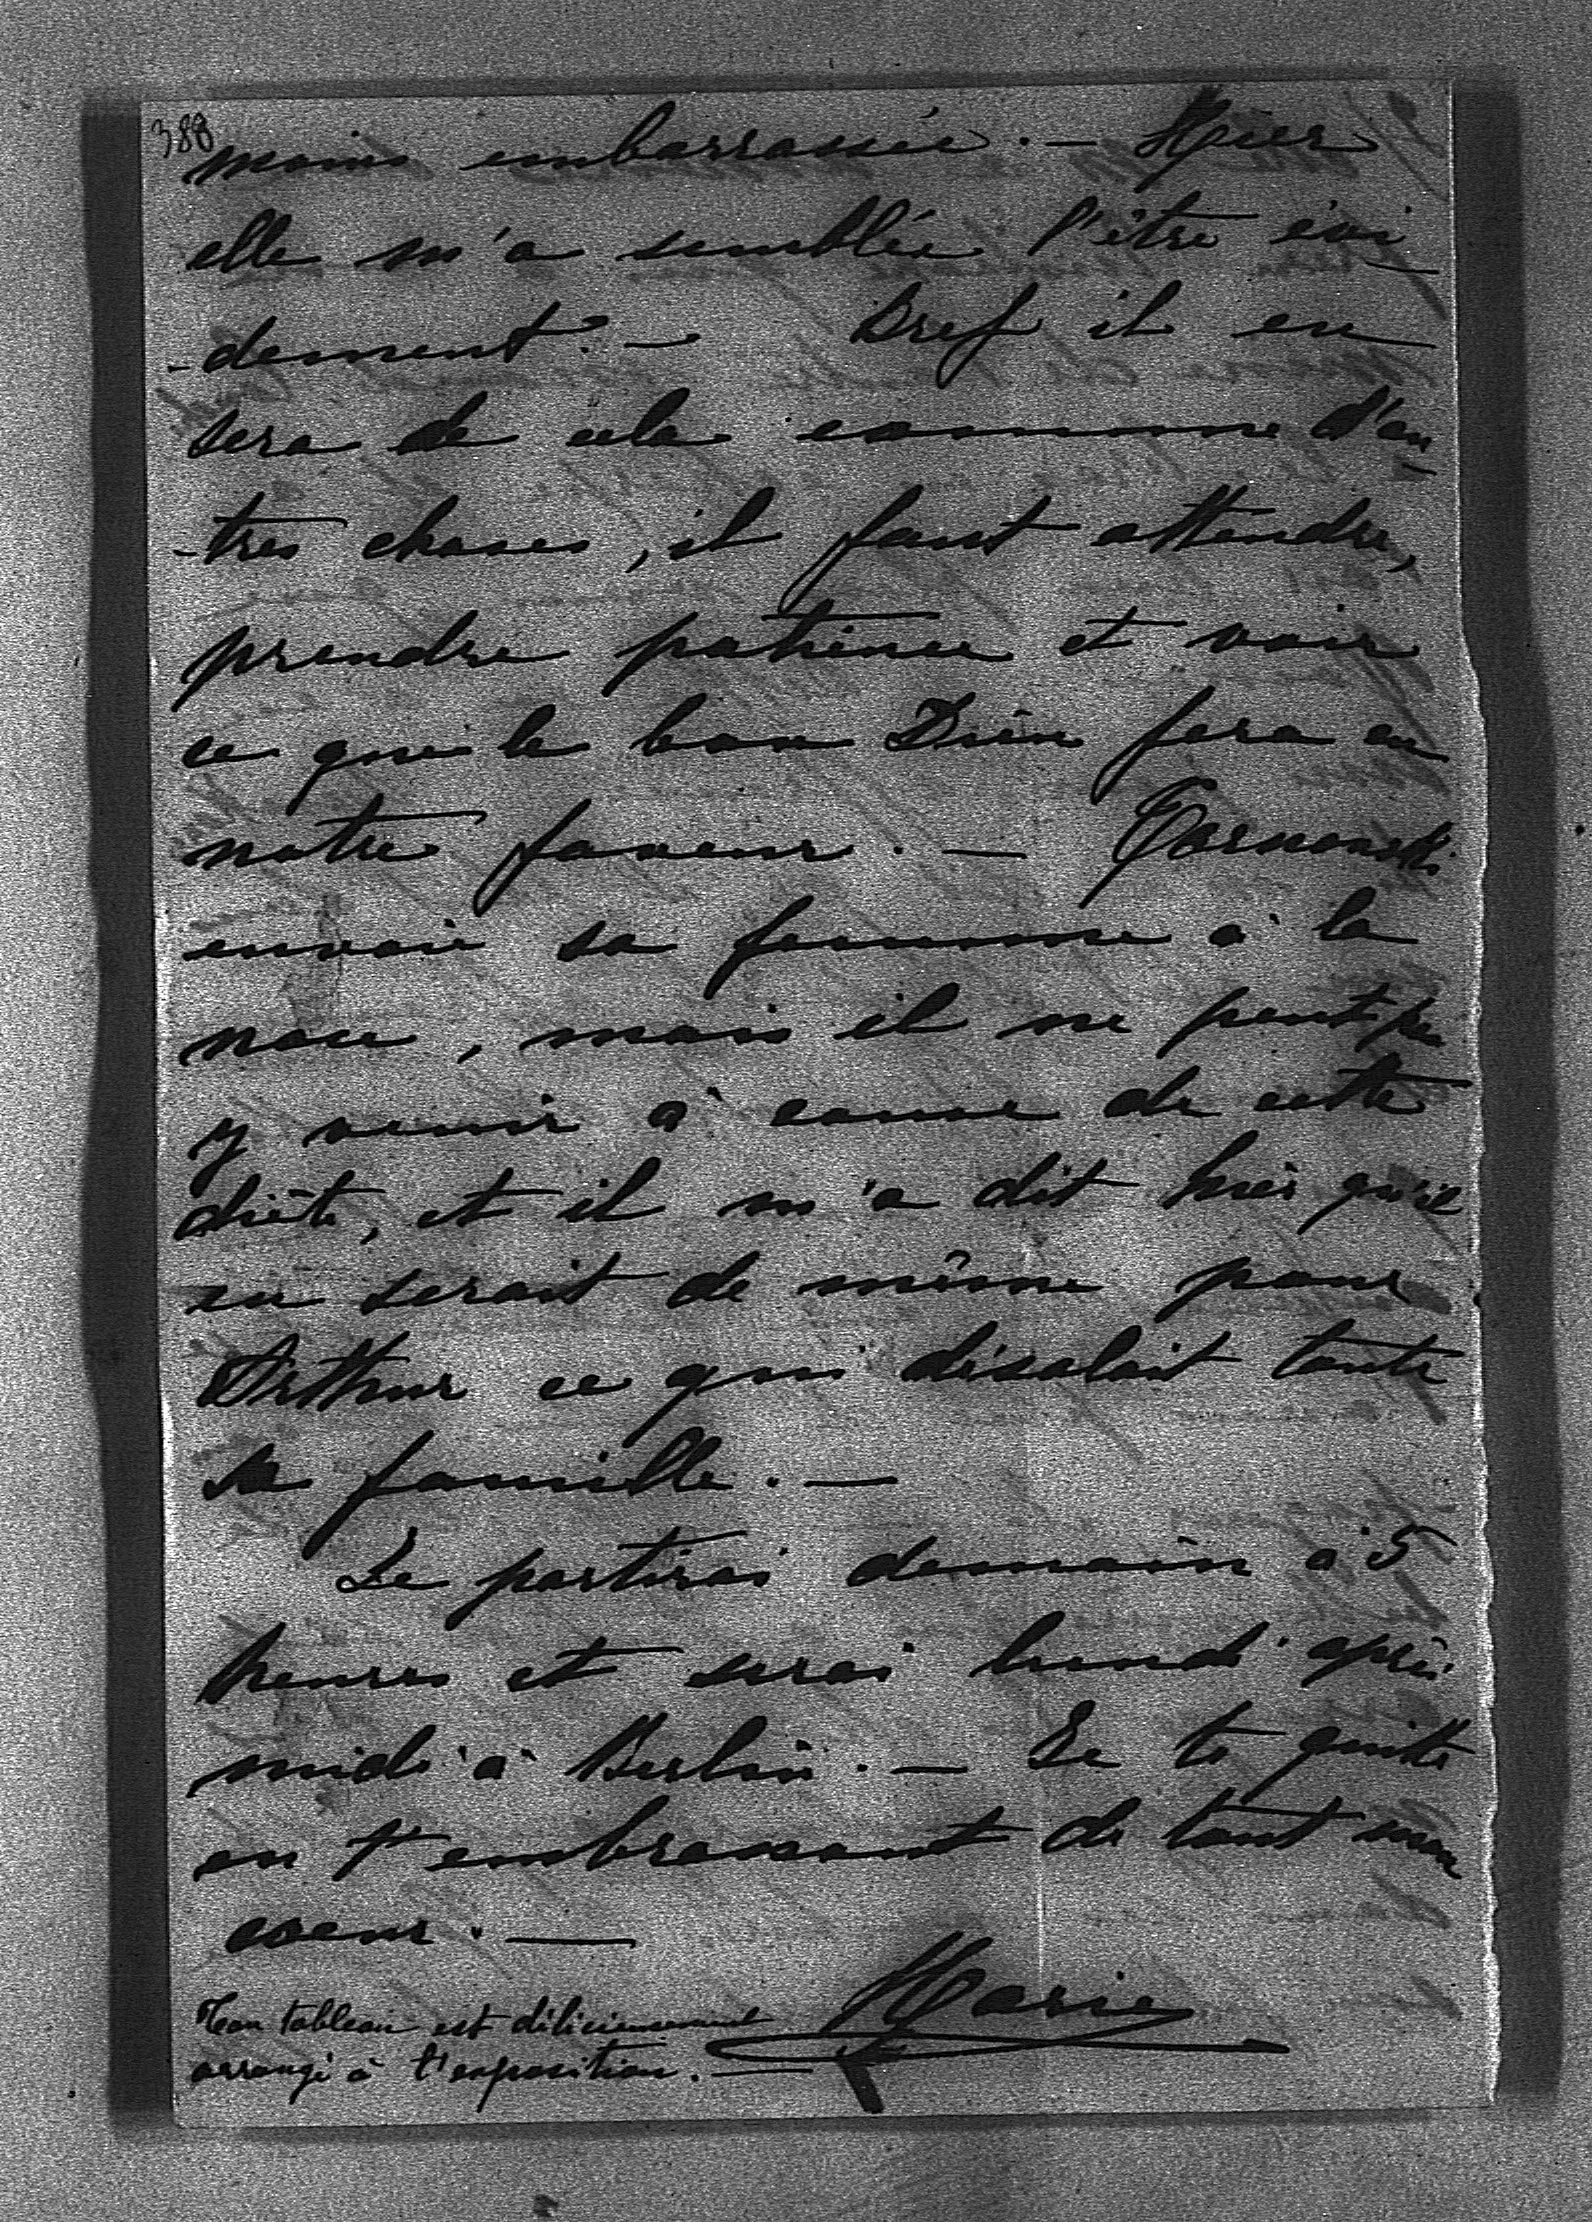 388
moins embarrassée. — Hier
elle m'a semblée l'être évi-
-demment. — Bref il en
sera de cela comme d'au-
-tres choses, il faut attendre,
prendre patience et voir
ce que le bon Dieu fera en
notre faveur. —
envoie sa femme à la
noce, mais il ne peut pas
y venir à cause de cette
diète, et il m'a dit hier qu'il
en serait de même pour
Arthur ce qui désolait toute
sa famille. —
Je partirai demain à 5
heures et serai lundi après
midi à Berlin. — Je te quitte
en t'embrassant de tout mon
coeur. —
Marie
Ton tableau est délicieusement
arrangé à l'exposition. —